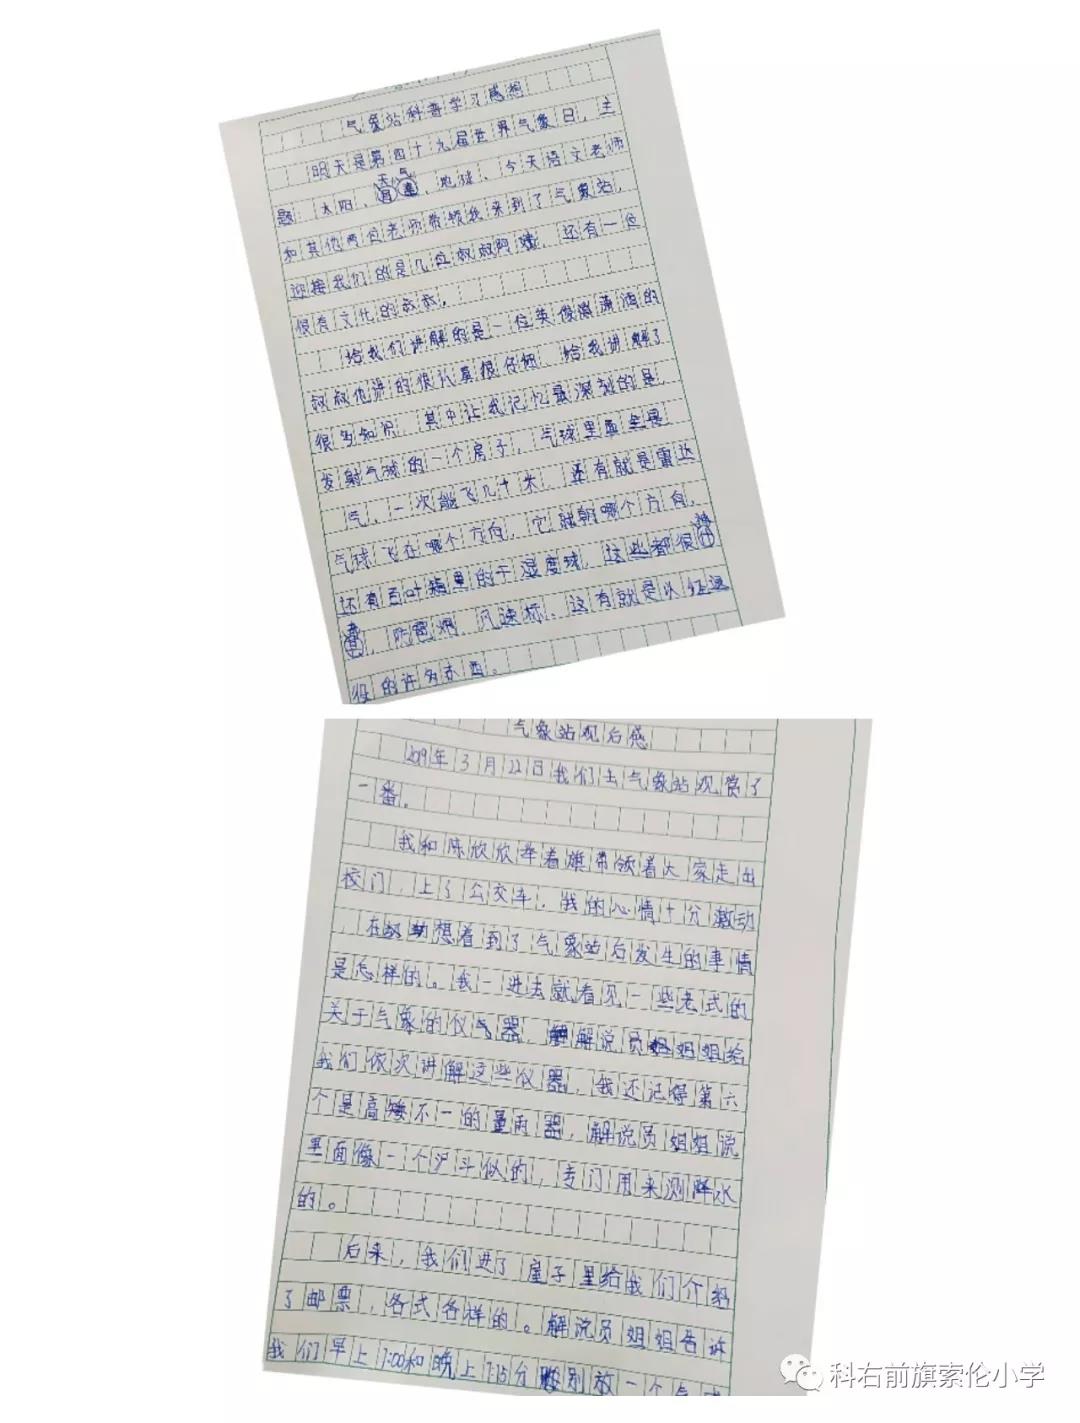 气象站科普学习感想
明天是第四十九届世界气象日，主
天气
题：太阳、地球、今天语文老师
和其他两位老师带领我来到了气象站，
迎接我们的是几位叔叔阿姨、还有一位
很有文化的叔叔，
给我们讲解的是一位英俊潇洒的
叔叔他讲的很认真很仔细、给我讲解了
很多知识、其中让我记忆最深刻的是，
发射气球的一个房子，气球里面全是
气、一次能飞几十米、还有就是雷达
气球飞在哪个方向，它就朝哪个方向，
还有百叶箱里的干湿度球、这些都很
、风速标、这有就是以
的许多东西。
气象站观后感
2019年3月22日我们去气象站观赏了
一番。
我和陈欣欣举着旗带领着大家走出
校门，上了公交车，我的心情十分激动
，在想着到了气象站后发生的事情
是怎样的。我一进去就看见一些老式的
关于气象的仪器，解说员姐姐给
我们依次讲解这些仪器，我还记得第六
个是高矮不一的量雨器，解说员姐姐说
里面像一个沪斗似的，专门用来测降水
的。
后来，我们进了屋子里给我们介绍
了邮票，各式各样的。解说员姐姐告诉
我们早上7:00和晚上7:15分别放一个气
科右前旗索伦小学